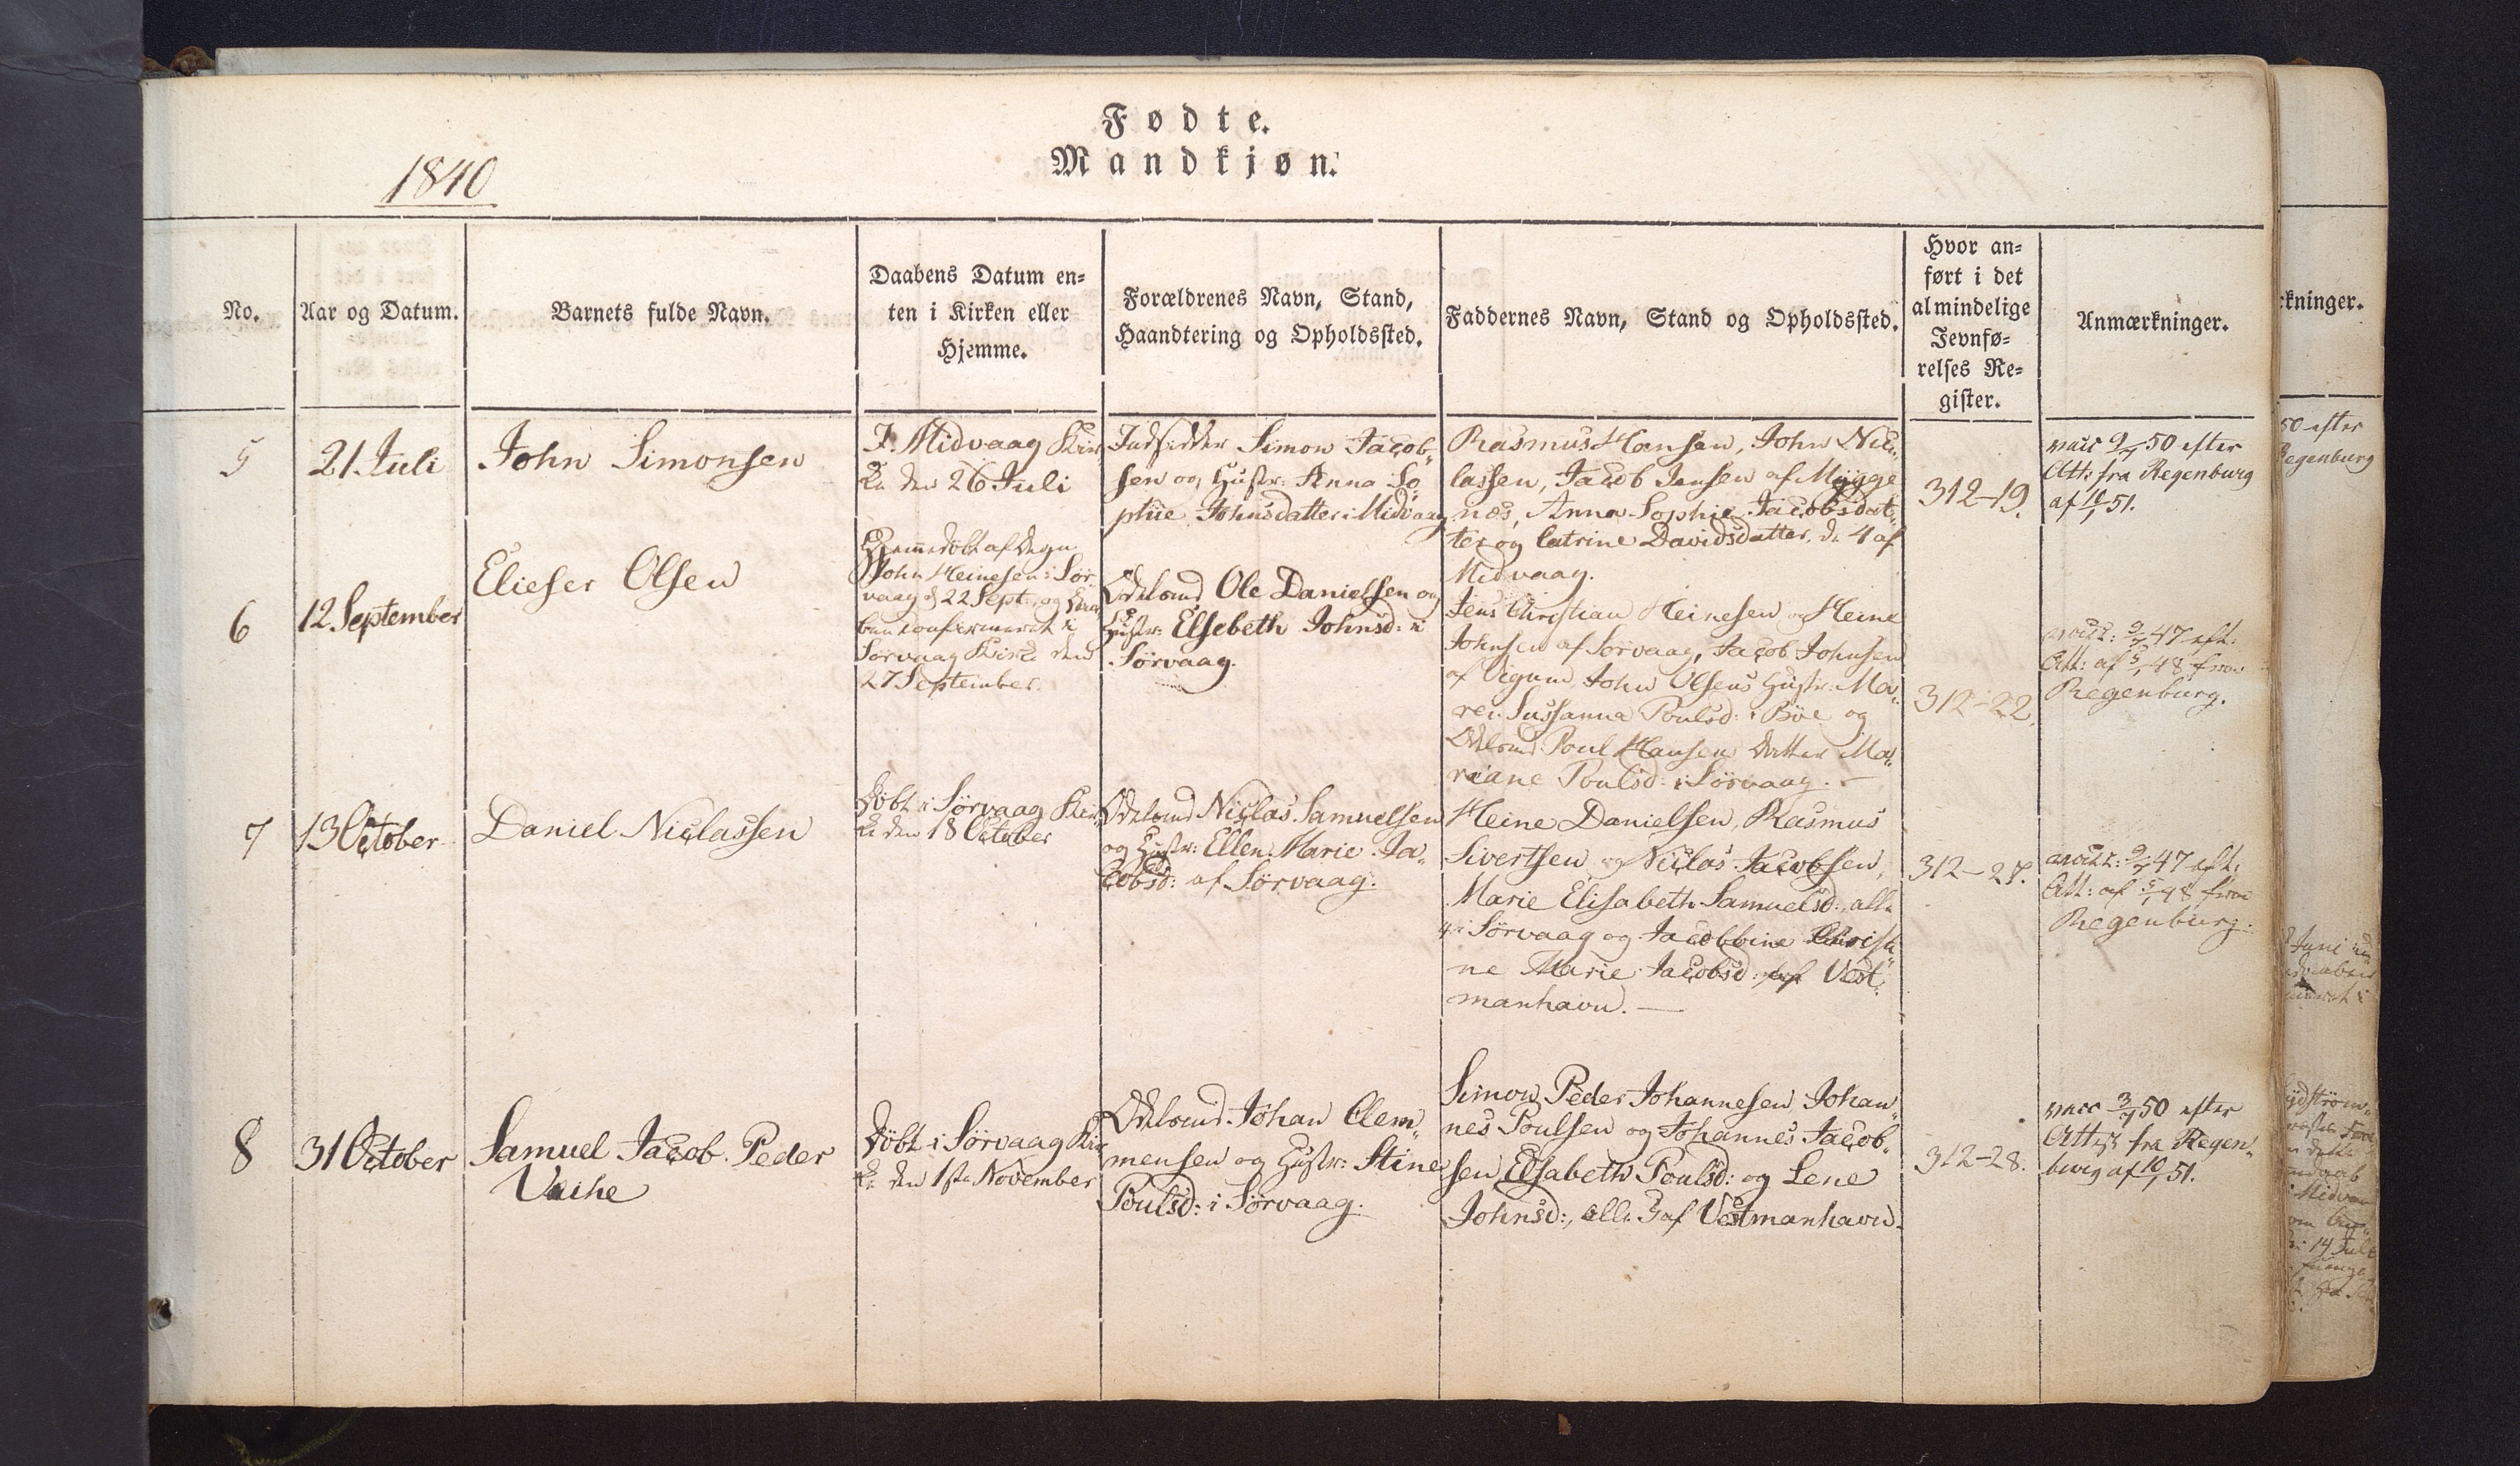 Fødte.
Mandkjøn.
1840
No.
Aar og Datum.
Barnets fulde Navn.
Daabens Datum en-
ten i Kirken eller
Hjemme.
Forældrenes Navn, Stand,
Haandtering og Opholdssted.
Faddernes Navn, Stand og Opholdssted.
Hvor an-
ført i det
almindelige
Jevnfø-
relses Re-
gister.
Anmærkninger.
5
21 Juli
John Simonsen
I Midvaag Kir-
ke den 26 Juli
Indsidder Simon Jacob-
sen og Hustr: Anna So
phie Johnsdatter i Midvaag
Rasmus Hansen, John Nic-
lassen, Jacob Jensen af Mygge
næs, Anna Sophie Jacobsdat-
ter og Catrine Davidsdatter, de 4 af
Midvaag.
312-19.
vacc 9/7 50 efter
Att: fra Regenburg
af 10/1 51.
6
12 September
Elieser Olsen
Hjemmedøbt af Degn
John Heinesen i Sør-
vaag d 22 Sept., og Daa
ben confirmeret i
Sørvaag Kirke den
27 September.
Odelsmd Ole Danielsen og
Hustr: Elsebeth Johnsd: i
Sørvaag.
Jens Christian Heinesen og Heine
Johnsen af Sørvaag, Jacob Johnsen
af Vigum, John Olsens Hustr: Ma-
ren Sussanna Poulsd: i Bøe og
Odelsmd Poul Hansens Datter Ma-
riane Poulsd: i Sørvaag.
312-22.
vacc: 9/7 47 eft:
Att: af 5/1 48 fra
Regenburg.
7
13 October
Daniel Niclassen
Døbt i Sørvaag Kir-
ke den 18 October
Odelsmd Niclas Samuelsen
og Hustr: Ellen Marie Ja-
cobsd: af Sørvaag.
Heine Danielsen, Rasmus
Sivertsen og Niclas Jacobsen,
Marie Elisabeth Samuelsd:, alle
4 i Sørvaag og Jacobbine Christi-
ne Marie Jacobsd: af Vest-
manhavn.
312-27.
vacc: 9/7 47 eft:
Att: af 5/1 48 fra
Regenburg.
8
31 October
Samuel Jacob Peder
Døbt i Sørvaag Kir-
ke den 1ste November
Odelsmd Johan Clem-
mensen og Hustr: Stine
Poulsd: i Sørvaag.
Simon Peder Johannesen, Johan-
nes Poulsen og Johannes Jacob-
sen, Elsabeth Poulsd: og Lene
Johnsd:, alle 5 af Vestmanhavn.
312-28.
vacc 3/7 50 efter
Attest fra Regen-
burg af 10/1 51.
kninger.
50 efter
Regenburg